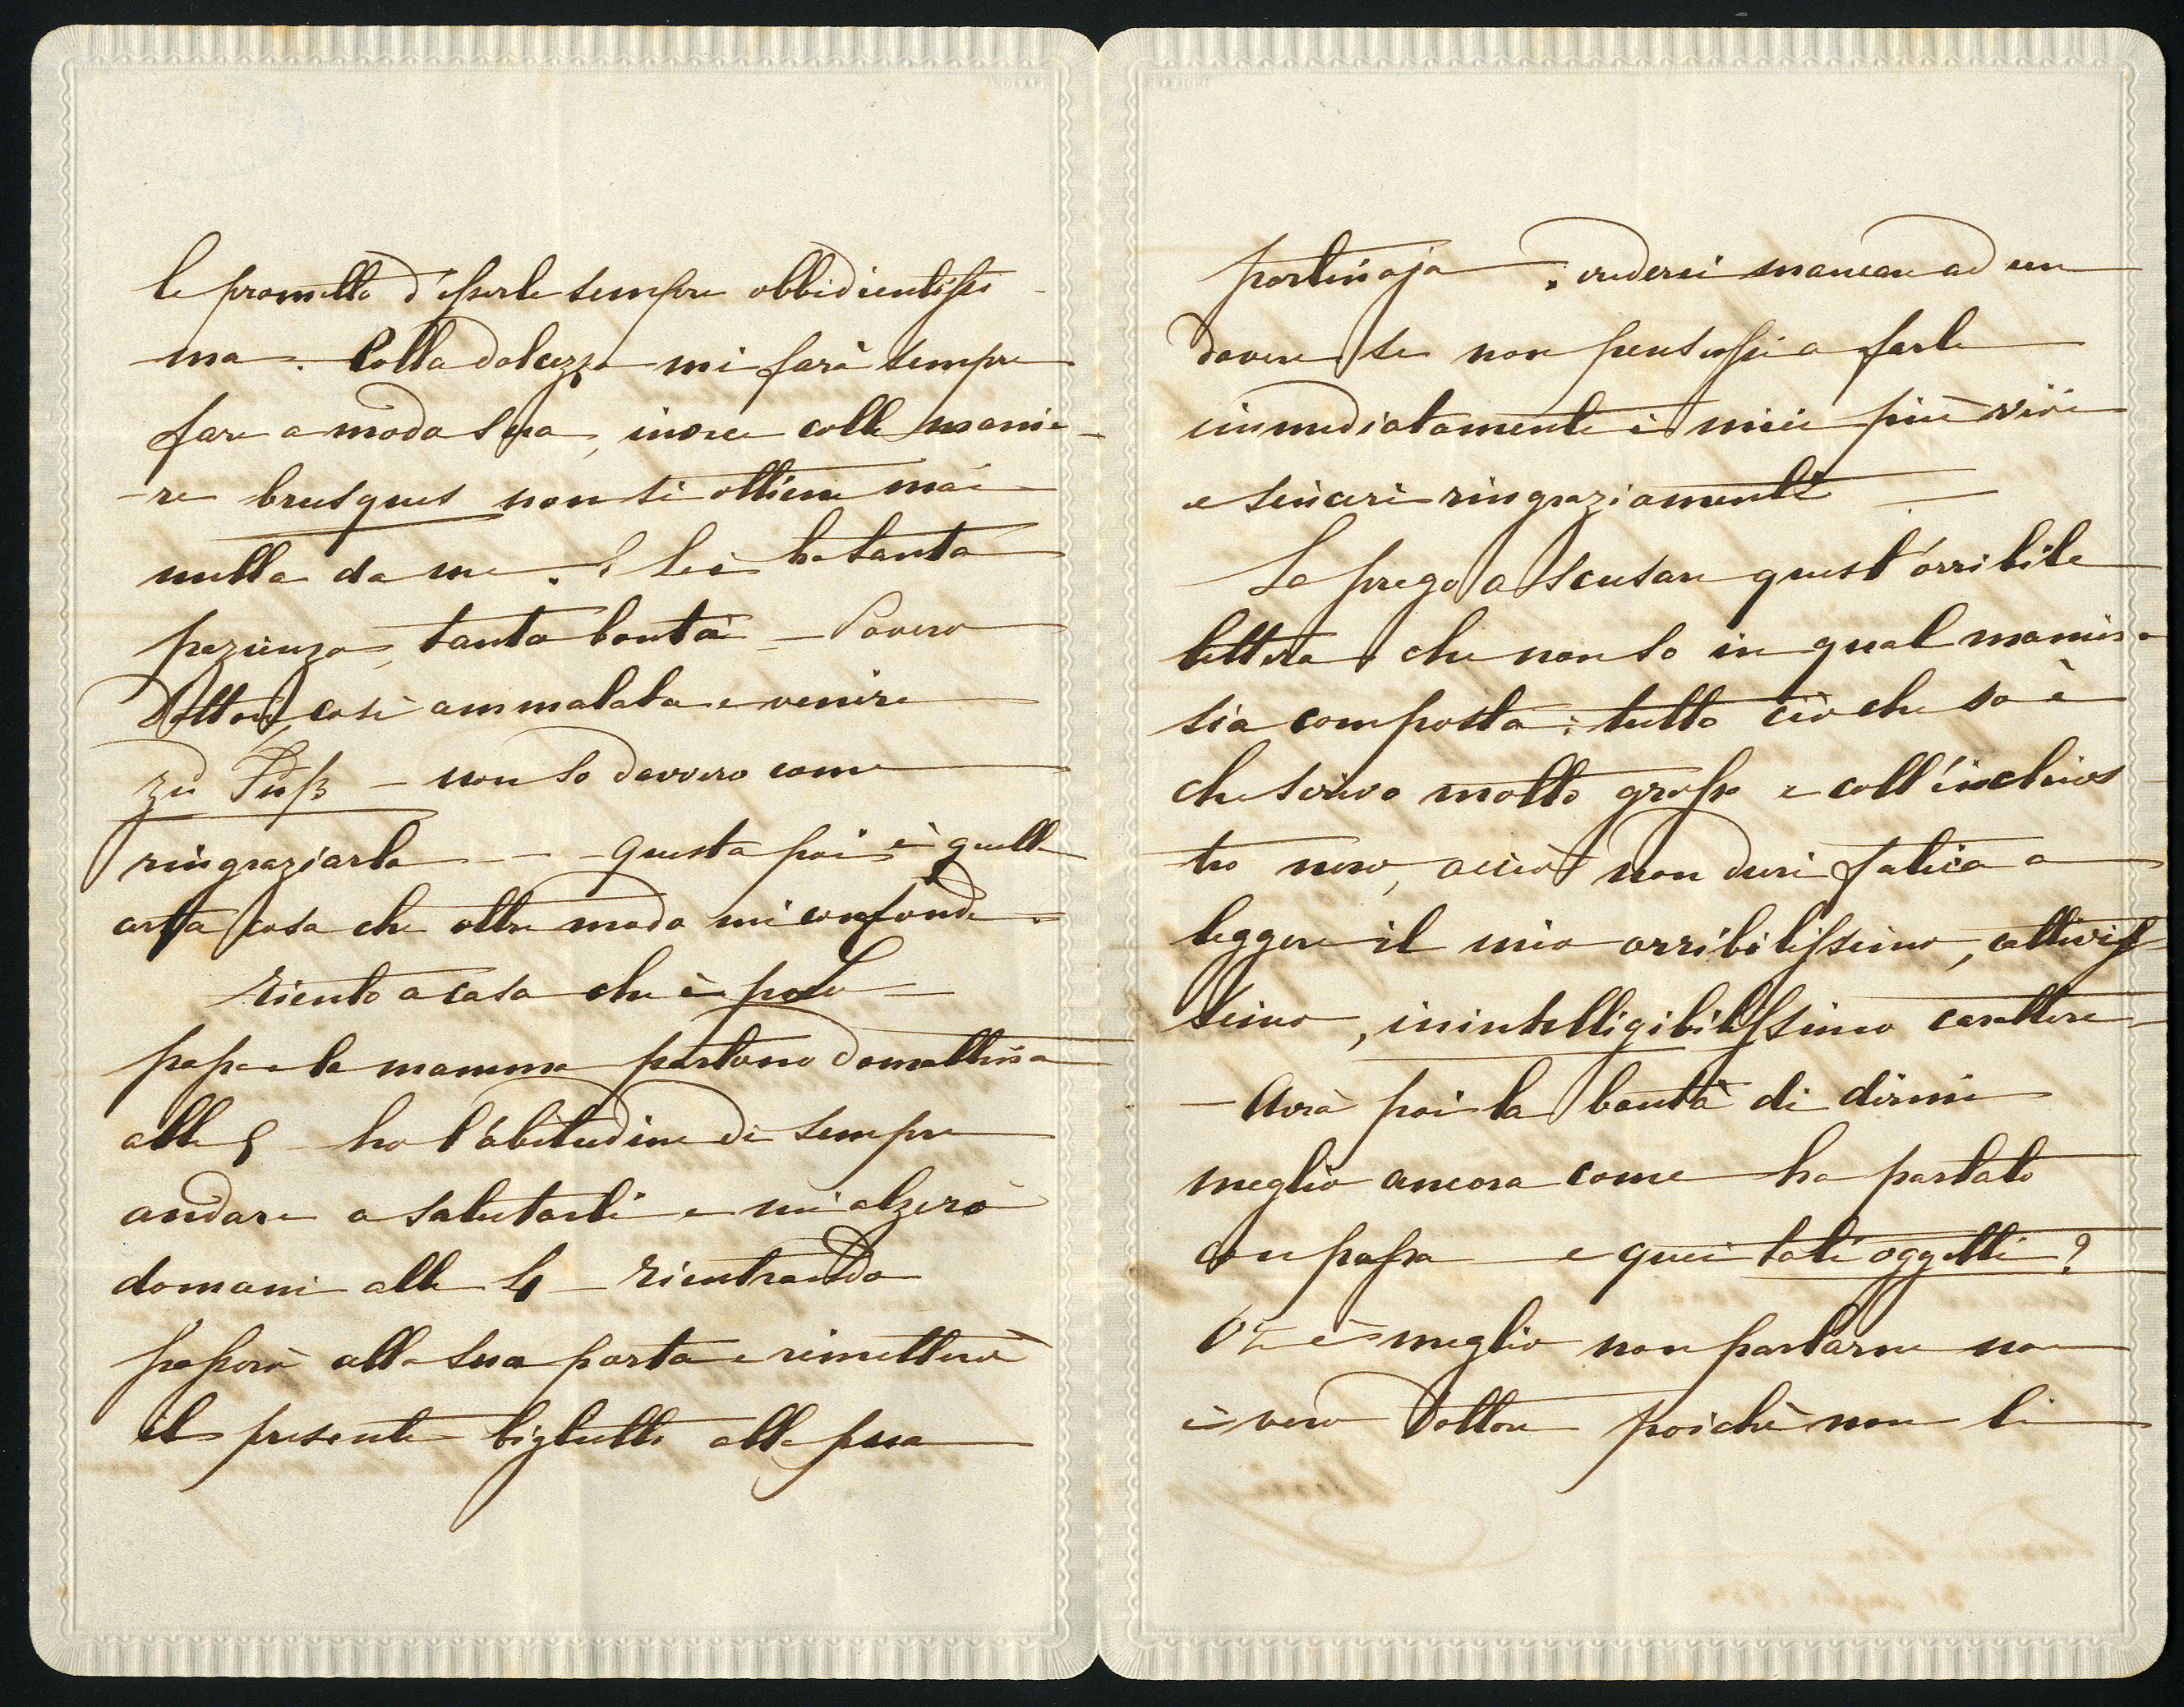 le prometto d'esserle sempre obbidientissi-
ma. Colla dolcezza mi farà sempre
fare a modo Suo, invece colle manie-
-re brusques non si ottiene mai
nulla da me. E lei ha tanta
pazienza, tanta bontà – Povero
Dottore, così ammalata e venire
zu Fuß – non so davvero come
ringraziarla – – questa poi è quella
certa cosa che oltre modo mi confonde.
Riento a casa che è poco
papa e la mamma partono domattina
alle 5 – ho l'abitudine di sempre
andare a salutarli e mi alzerò
domani alle 4 – Rientrando
passerò alla sua porta e rimetterò
il presente biglietto alla sua
portinaja ; crederei mancare ad un
dovere se non pensassi a farle
immediatamente i miei più vivi
e sinceri ringraziamenti –
La prego a scusare quest'orribile
lettera, che non so in qual maniera
sia composta: tutto ciò che so è
che scrivo molto grosso e coll'inchios
tro nero, acciò non duri fatica a
leggere il mio orribilissimo, cattivis
simo, inintelligibilissimo carattere
– Avrà poi la bontà di dirmi
meglio ancora come ha parlato
con papa e quei tali oggetti?
è meglio non parlarne non
è vero Dottore poichè non li